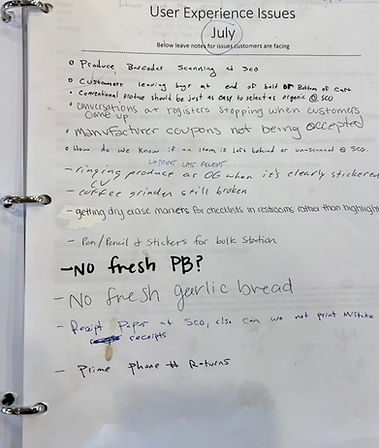 User Experience Issues
July
Below leave notes for issues customers are facing
Produce Barcodes Scanning at SCO
Customers leaving bags at end of belt or Bottom of Cart
Conventional produce should be just as easy to select as organic @ SCO
Conversations at registers stopping when customers
come up
manufacturer coupons not being accepted
How do we know if an item is left behind or unscanned @ SCO.
- ringing produce as OG when it's clearly stickered
CV
- coffee grinder still broken
- getting dry erase markers for checklists in restrooms rather than highlight
- Pen/Pencil & Stickers for bulk Station
- No fresh PB?
- No fresh garlic bread
- Receipt Paper at SCO, also can we not print mistake
receipts
- Prime Phone # Returns